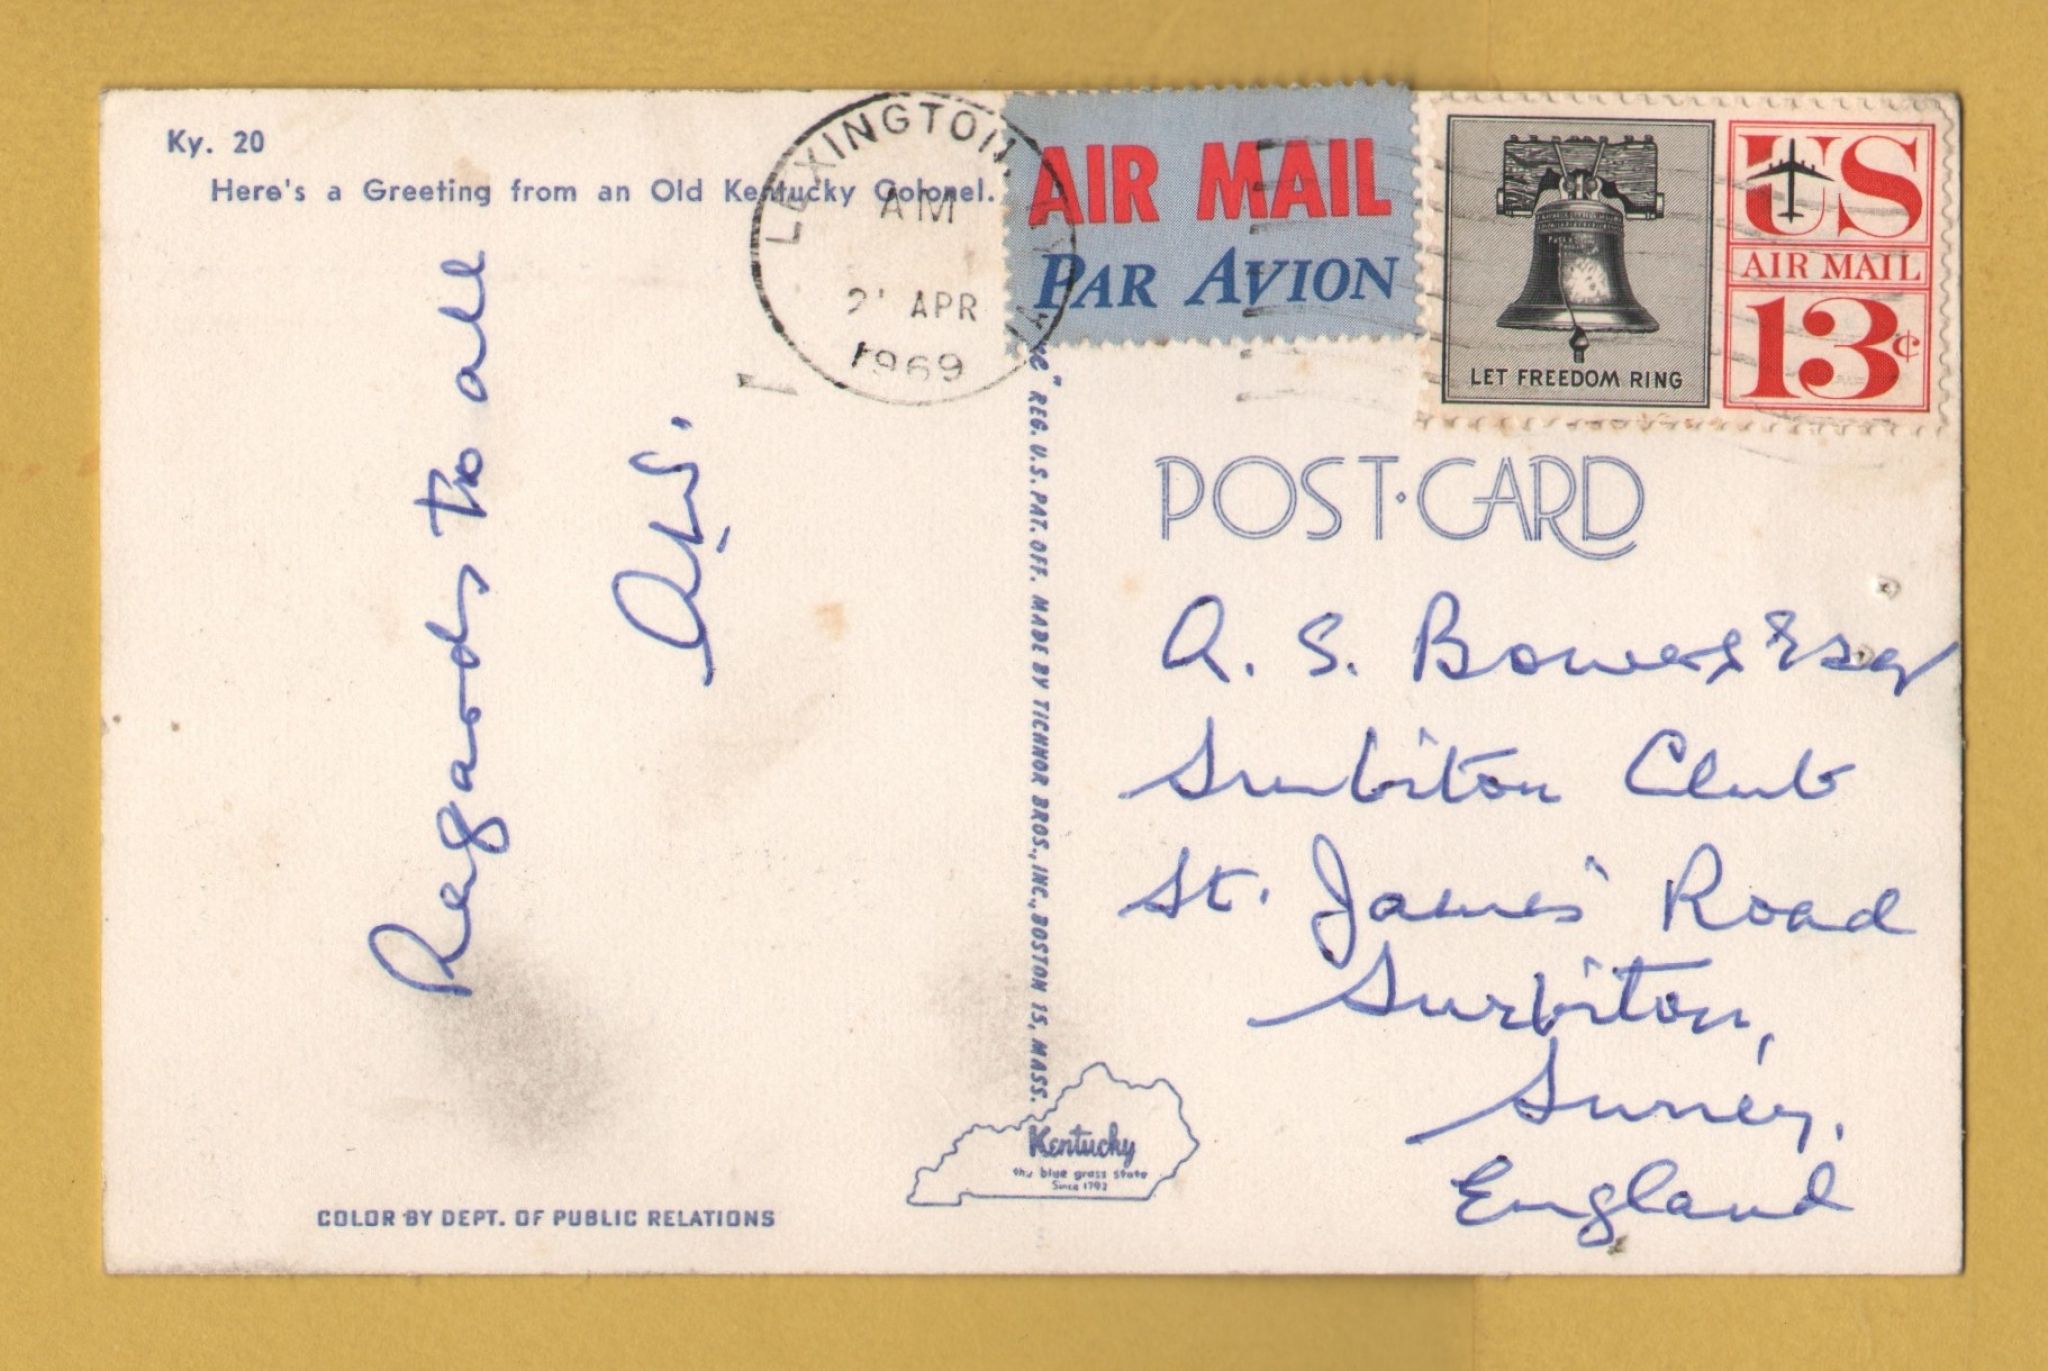 Ky. 20
Here's a Greeting from an Old Kentucky Colonel.
LEXINGTON
AM
APR
1969
AIR MAIL
PAR AVION
LET FREEDOM RING
US
AIR MAIL
13¢
Regards to all
POST·CARD
A. S. Bowes Esq
Surbiton Club
St. James' Road
Surbiton,
Surrey,
England
REG. U.S. PAT. OFF. MADE BY TICHNOR BROS., INC., BOSTON 15, MASS.
Kentucky
the blue grass state
Since 1792
COLOR BY DEPT. OF PUBLIC RELATIONS